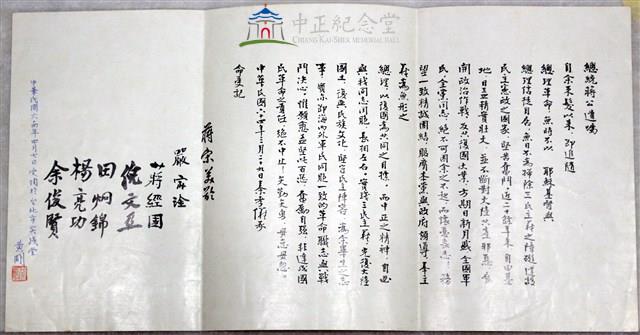 中正紀念堂
CHIANG KAI-SHEK MEMORIAL HALL
總統 蔣公遺囑
自余束髮以來,即追隨
總理革命,無時不以 耶穌基督與
總理信徒自居,無日不為掃除三民主義之障礙,建設
民主憲政之國家,堅苦奮鬥。近二十餘年來,自由基
地,日益精實壯大,並不斷對大陸共產邪惡,展
開政治作戰,反共復國大業,方期日新月盛,全國軍
民、全黨同志,絕不可因余之不起,而懷憂喪志。務
望一致精誠團結,服膺本黨與政府領導,奉主
義為無形之
總理,以復國為共同之目標,而中正之精神,自必
與我同志同胞,長相左右。實踐三民主義,光復大陸
國土,復興民族文化,堅守民主陣容,為余畢生之志
事,實亦即海內外軍民同胞一致的革命職志與戰
鬥決心。惟願愈益堅此百忍,奮勵自強,非達成國
民革命之責任,絕不中止。矢勤矢勇,毋怠毋忽。
中華民國六十四年三月二十九日秦孝儀承
命受記
蔣宋美齡
嚴家淦
蔣經國
倪文亞
田炯錦
楊亮功
余俊賢